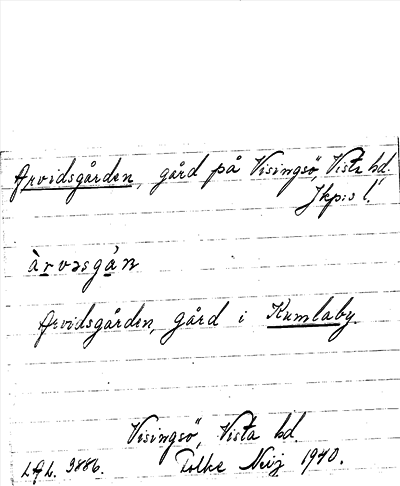 Arvidsgården, gård på Visingsö, Vista hd.
Jkp:s l.
àrvəsgån
Arvidsgården, gård i Kumlaby.
Visingsö, Vista hd.
3886. Folke Neij 1940.